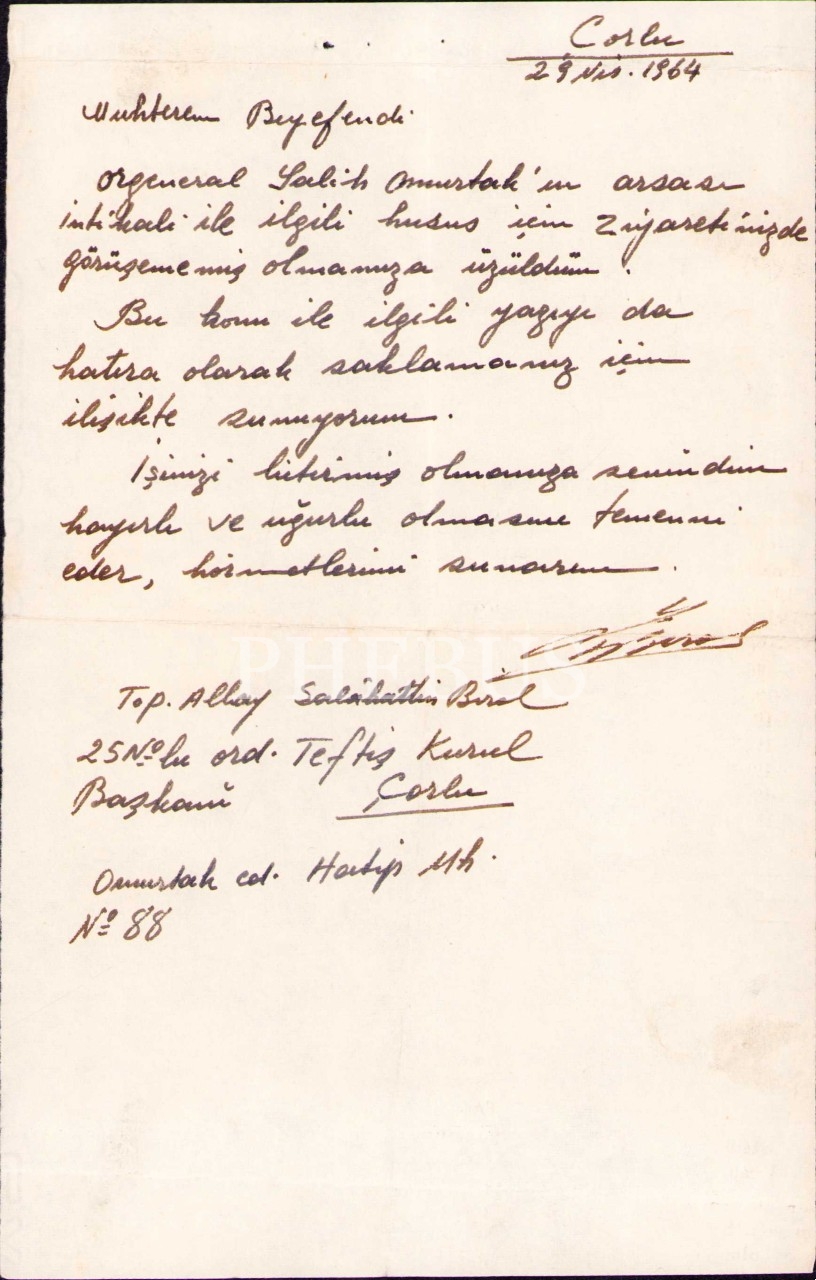 Çorlu
29 Nis. 1964
Muhterem Beyefendi
Orgeneral Salih Omurtak'ın arsası
intikali ile ilgili husus için ziyaretinizde
görüşememiş olmamıza üzüldüm.
Bu konu ile ilgili yazıyı da
hatıra olarak saklamanız için
ilişikte sunuyorum.
İşinizi bitirmiş olmanıza sevindim
hayırlı ve uğurlu olmasını temenni
eder, hörmetlerimi sunarım.
PHEBUS
Top. Albay Salâhattin Birol
25 Nº lu ord. Teftiş Kurul
Başkanı Çorlu
Omurtak cd. Hatip Mh.
Nº 88